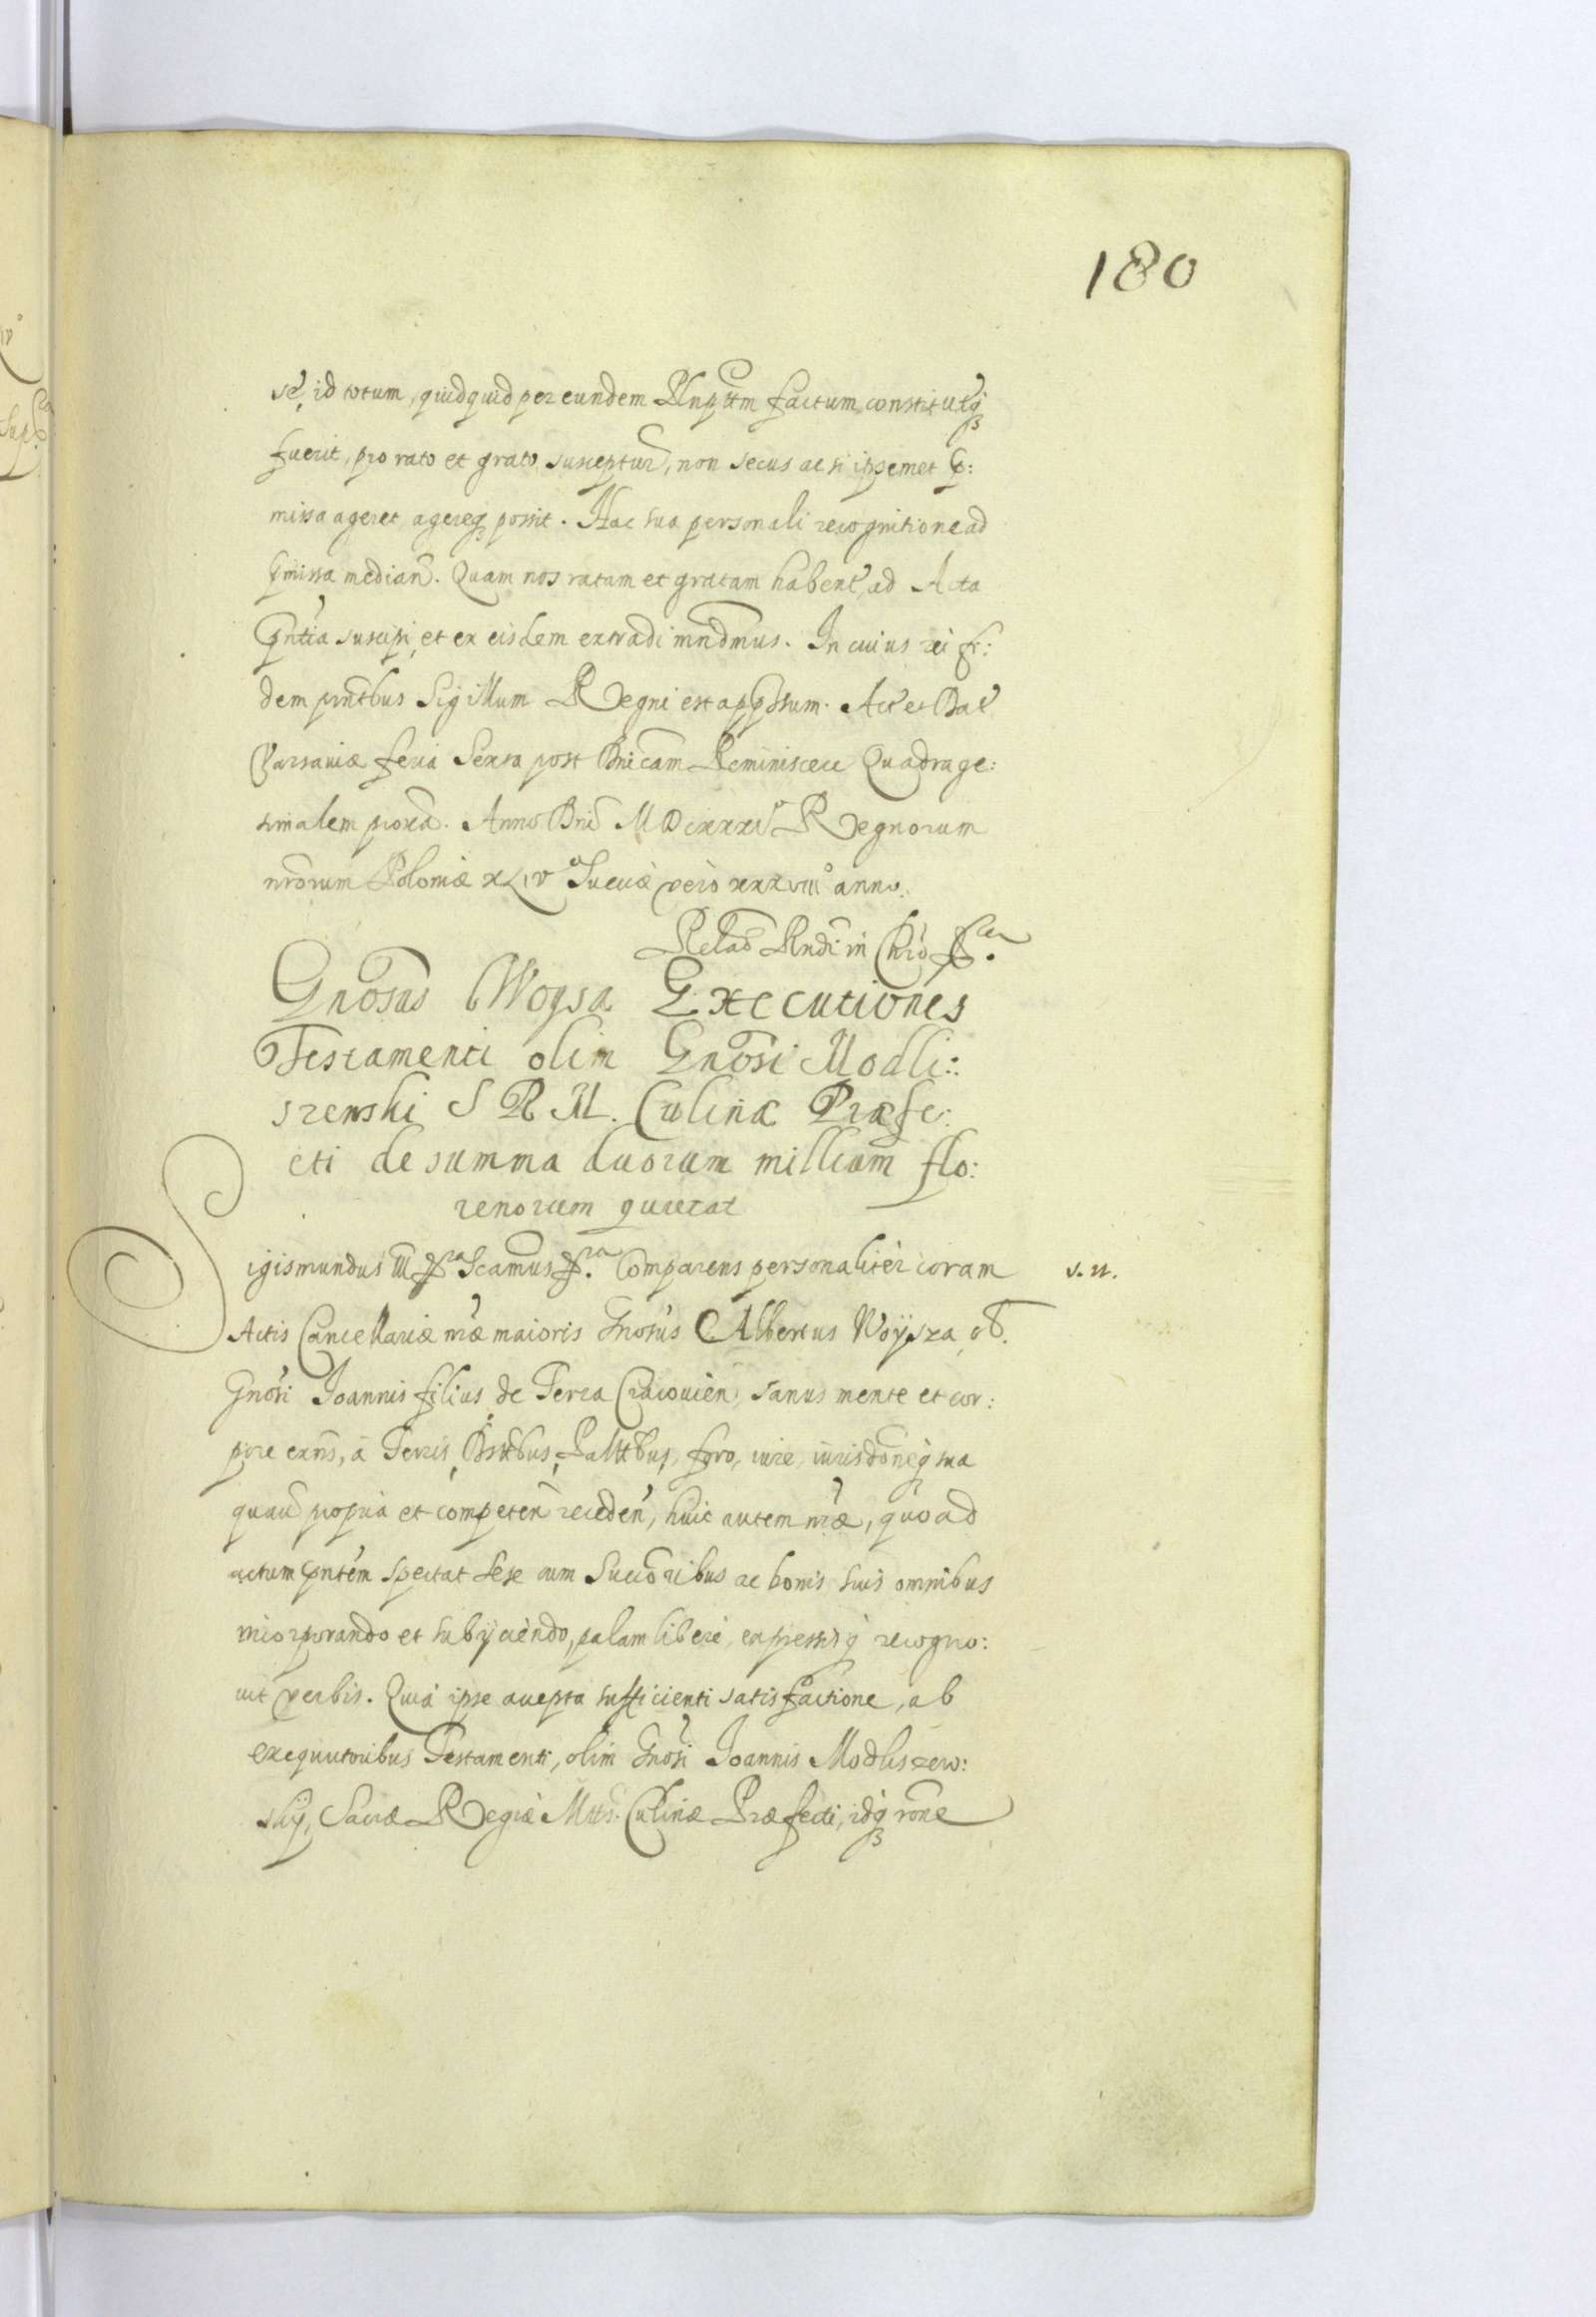 180
se, id totum, quidquid per eundem Plnptm factum, constitutq
fuerit, pro rato et grato susceptur, non secus ac si ipsemet p:
missa ageret agereq possit. Hac sua personali recognitione ad
pmissa median. Quam nos ratam et gratam haben, ad Acta
pntia suscipi, et ex eisdem extradi mndmus. In cuius rei fi:
dem pntbus Sigillum Regni est appssum. Act et Dat
Varsaviæ feria Sexta post Dnicam Reminiscere Quadrage:
simalem proxa. Anno Dni MDCXXXIo Regnorum
nrorum Poloniæ XLIVo Sueciæ vero XXXVIIIo anno.
Relao Rndi in Chro &c
Gnosus Woysa Executiones
Testamenti olim Gnosi Modli:
szewski S R M. Culinæ Præfe:
cti de summa duorum millium flo:
renorum quietat
Sigismundus III &ra Scamus &ra Comparens personaliter coram
s. n.
Actis Cancellariæ nræ maioris Gnosus Albertus Woysza, o.
Gnosi Ioannis filius de Terra Cracovien, sanus mente et cor:
pore exns, a Terris, Dstibus, Palttbus, foro, iure, iurisdoneq sua
quavis propria et competen receden, huic autem nræ, quo ad
actum pntem spectat sese cum Succoribus ac bonis suis omnibus
incorporando et subijciendo, palam libere, expressisq recogno:
vit verbis. Quia ipse accepta sufficienti satisfactione, ab
exequutoribus Testamenti, olim Gnosi Ioannis Modliszew:
skij, Sacræ Regiæ Mttis Culinæ Præfecti, idq rone